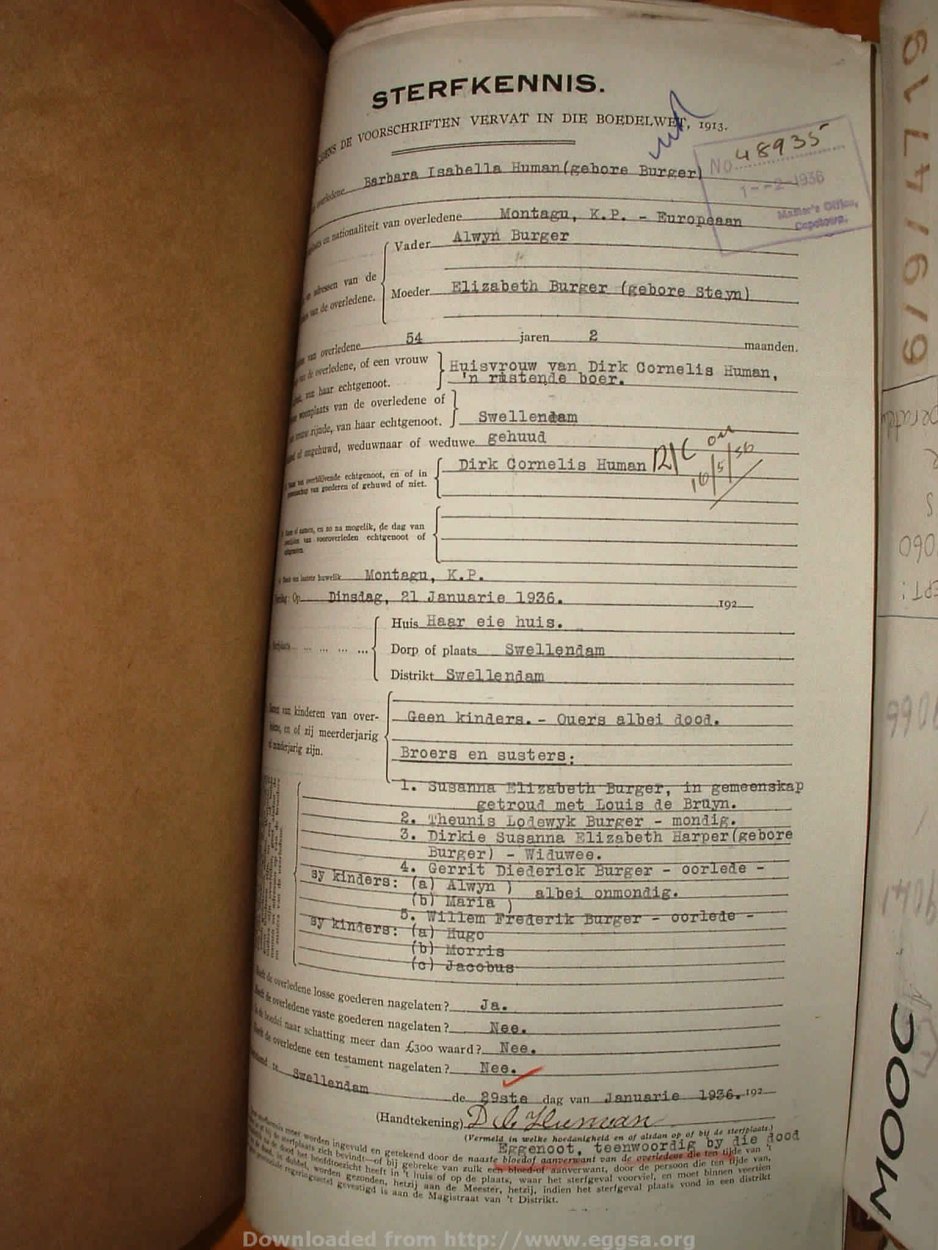 STERFKENNIS.
DE VOORSCHRIFTEN VERVAT IN DIE BOEDELWET, 1913.
No 48935
1--2-1936
Master's Office,
Capetown.
overledene Barbara Isabella Human(gebore Burger)
en nationaliteit van overledene Montagu, K.P. - Europeaan
Vader Alwyn Burger
adressen van de
van de overledene.
Moeder Elizabeth Burger (gebore Steyn)
van overledene 54 jaren 2 maanden.
de overledene, of een vrouw
van haar echtgenoot.
Huisvrouw van Dirk Cornelis Human,
'n rustende boer.
woonplaats van de overledene of
zijnde, van haar echtgenoot.
Swellendam
of ongehuwd, weduwnaar of weduwe gehuud
Dirk Cornelis Human
van overblijvende echtgenoot, en of in
van goederen of gehuwd of niet.
of namen, en zo na mogelik, de dag van
van vooroverleden echtgenoot of
van laatste huwelik Montagu, K.P.
Op Dinsdag, 21 Januarie 1936. 192
Huis Haar eie huis.
Dorp of plaats Swellendam
Distrikt Swellendam
van kinderen van over-
en of zij meerderjarig
of minderjarig zijn.
Geen kinders.- Ouers albei dood.
Broers en susters:
1. Susanna Elizabeth Burger, in gemeenskap
getroud met Louis de Bruyn.
2. Theunis Lodewyk Burger - mondig.
3. Dirkie Susanna Elizabeth Harper(gebore
Burger) - Widuwee.
4. Gerrit Diederick Burger - oorlede -
sy kinders: (a) Alwyn )
albei onmondig.
(b) Maria )
5. Willem Frederik Burger - oorlede -
sy kinders: (a) Hugo
(b) Morris
(c) Jacobus
de overledene losse goederen nagelaten? Ja.
de overledene vaste goederen nagelaten? Nee.
de boedel naar schatting meer dan £300 waard? Nee.
de overledene een testament nagelaten? Nee.
te Swellendam de 29ste dag van Januarie 1936. 192
(Handtekening) D C Human
(Vermeld in welke hoedanigheid en of alsdan op of bij de sterfplaats.)
Eggenoot, teenwoordig by die dood
moet worden ingevuld en getekend door de naaste bloedof aanverwant van de overledene die ten tijde van 't
bij de sterfplaats zich bevindt—of bij gebreke van zulk een bloed-of aanverwant, door de persoon die ten tijde van,
de dood het hoofdtoezicht heeft in 't huis of op de plaats, waar het sterfgeval voorviel, en moet binnen veertien
in dubbel, worden gezonden, hetzij aan de Meester, hetzij, indien het sterfgeval plaats vond in een distrikt
gevestigd is aan de Magistraat van 't Distrikt.
MOOC
6/9/7471/9
Downloaded from http://www.eggsa.org